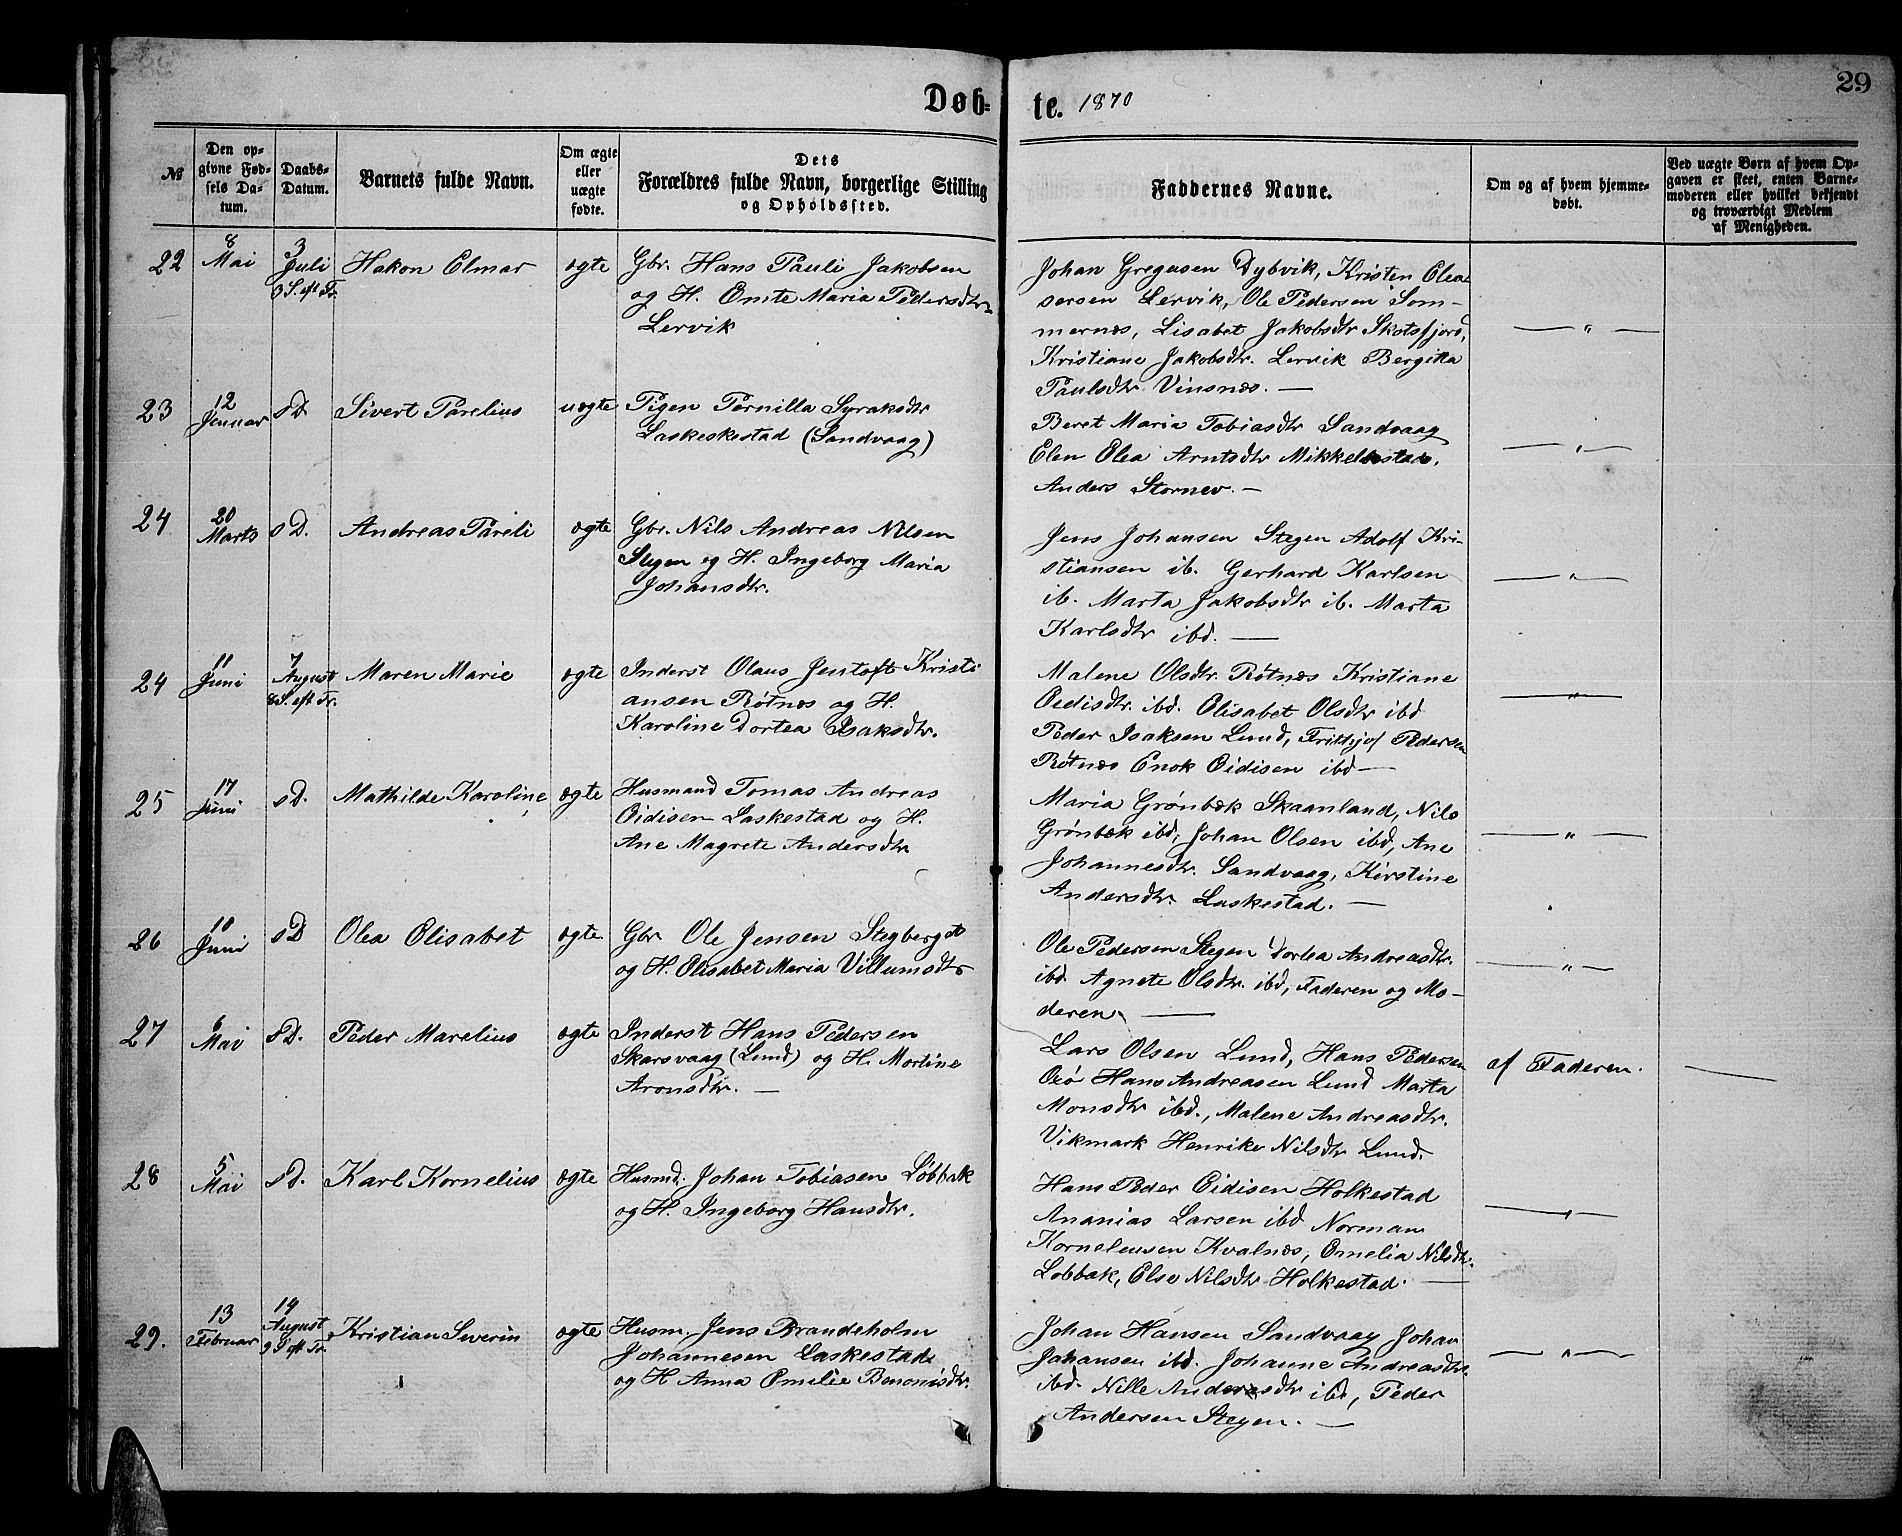 29
Døb- te. 1870
№
Den op-
givne Fød-
sels Da-
tum.
Daabs-
Datum.
Barnets fulde Navn.
Om ægte
eller
uægte
fødte.
Dets
Forældres fulde Navn, borgerlige Stilling
og Opholdssted.
Faddernes Navne.
Om og af hvem hjemme-
døbt.
Ved uægte Børn af hvem Op-
gaven er skeet, enten Barne-
moderen eller hvilket bekjendt
og troværdigt Medlem
af Menigheden.
22
8
Mai
3
Juli
3 S. eft Tr.
Hakon Elmar
ægte
Gbr. Hans Pauli Jakobsen
og H. Emte Maria Pedersdtr
Lervik
Johan Gregusen Dybvik, Kristen Elea
sersen Lervik, Ole Pedersen Som-
mernæs, Lisabet Jakobsdtr Skotsfjord,
Kristiane Jakobsdtr. Lervik Bergitta
Paulsdtr Vinsnæs. —
— " —
23
12
Januar
s D.
Sivert Parelius
uægte
Pigen Pernilla Syraksdtr
Laskeskestad (Sandvaag)
Beret Maria Tobiasdtr Sandvaag
Elen Olea Arntsdtr Mikkelstad.
Anders Stornev. —
— " —
24
20
Marts
s D.
Andreas Pareli
ægte
Gbr. Nils Andreas Nilsen
Stegen og H. Ingeborg Maria
Johansdtr.
Jens Johansen Stegen Adolf Kri-
stiansen ib. Gerhard Karlsen
ib. Marta Jakobsdtr ib. Marta
Karlsdtr ibd. —
— " —
24
11
Juni
7
August
8 S. eft Tr.
Maren Marie
ægte
Inderst Olaus Jentoft Kristi
ansen Røtnæs og H.
Karoline Dortea Isaksdtr.
Malene Olsdtr. Røtnæs Kristiane
Eidisdtr. ibd. Elisabet Olsdtr ibd
Peder Isaksen Lund, Frithjof Pedersen
Røtnæs Enok Eidisen ibd —
— " —
25
17
Juni
s D.
Mathilde Karoline
ægte
Husmand Tomas Andreas
Eidisen Laskestad og H.
Ane Magrete Andersdtr
Maria Grønbæk Skaanland, Nils
Grønbæk ibd, Johan Olsen ibd, Ane
Johannesdtr. Sandvaag, Kirstine
Andersdtr. Laskestad. —
— " —
26
10
Juni
s D
Olea Elisabet
ægte
Gbr Ole Jensen Stegberget
og H. Elisabet Maria Villumsdtr
Ole Pedersen Stegen Dortea Andreasdtr.
ibd. Agnete Olsdtr. ibd, Faderen og Mo-
deren. —
— " —
27
6
Mai
s D.
Peder Marelius
ægte
Inderst Hans Pedersen
Skarsvaag (Lund) og H. Martine
Aronsdtr. —
Lars Olsen Lund, Hans Pedersen
Hans Andreasen Lund Marta
Monsdtr ibd., Malene Andreasdtr.
Vikmark Henrike Nilsdtr Lund.
af Faderen.
—
28
5
Mai
s D.
Karl Kornelius
ægte
Husmd. Johan Tobiasen Løbbak
og H. Ingeborg Hansdtr.
Hans Peder Eidisen Holkestad
Ananias Larsen ibd Norman
Korneliusen Kvalnæs, Emelia Nilsdtr.
Løbbak, Else Nilsdtr Holkestad. —
— " —
29.
13
Februar
14
August
9 S eft Tr.
Kristian Severin
ægte
Husm. Jens Brandeholm
Johannesen Laskestad
og H Anna Emilie Benonisdtr.
Johan Hansen Sandvaag Johan
Johansen ibd. Johanne Andreasdtr.
ibd. Nille Andersdtr ibd, Peder
Andersen Stegen. —
— " —